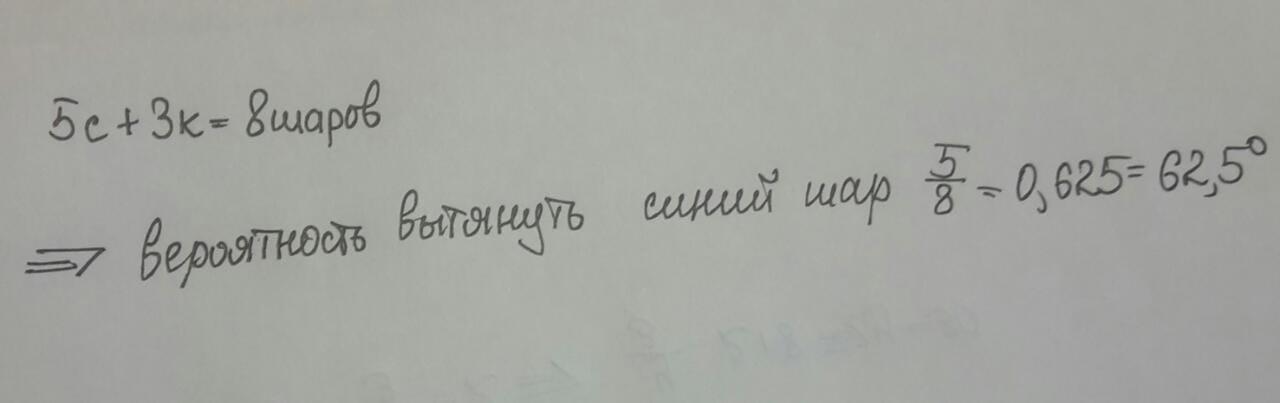 5с + 3к = 8 шаров
⇒ вероятность вытянуть синий шар 5/8 = 0,625 = 62,5°